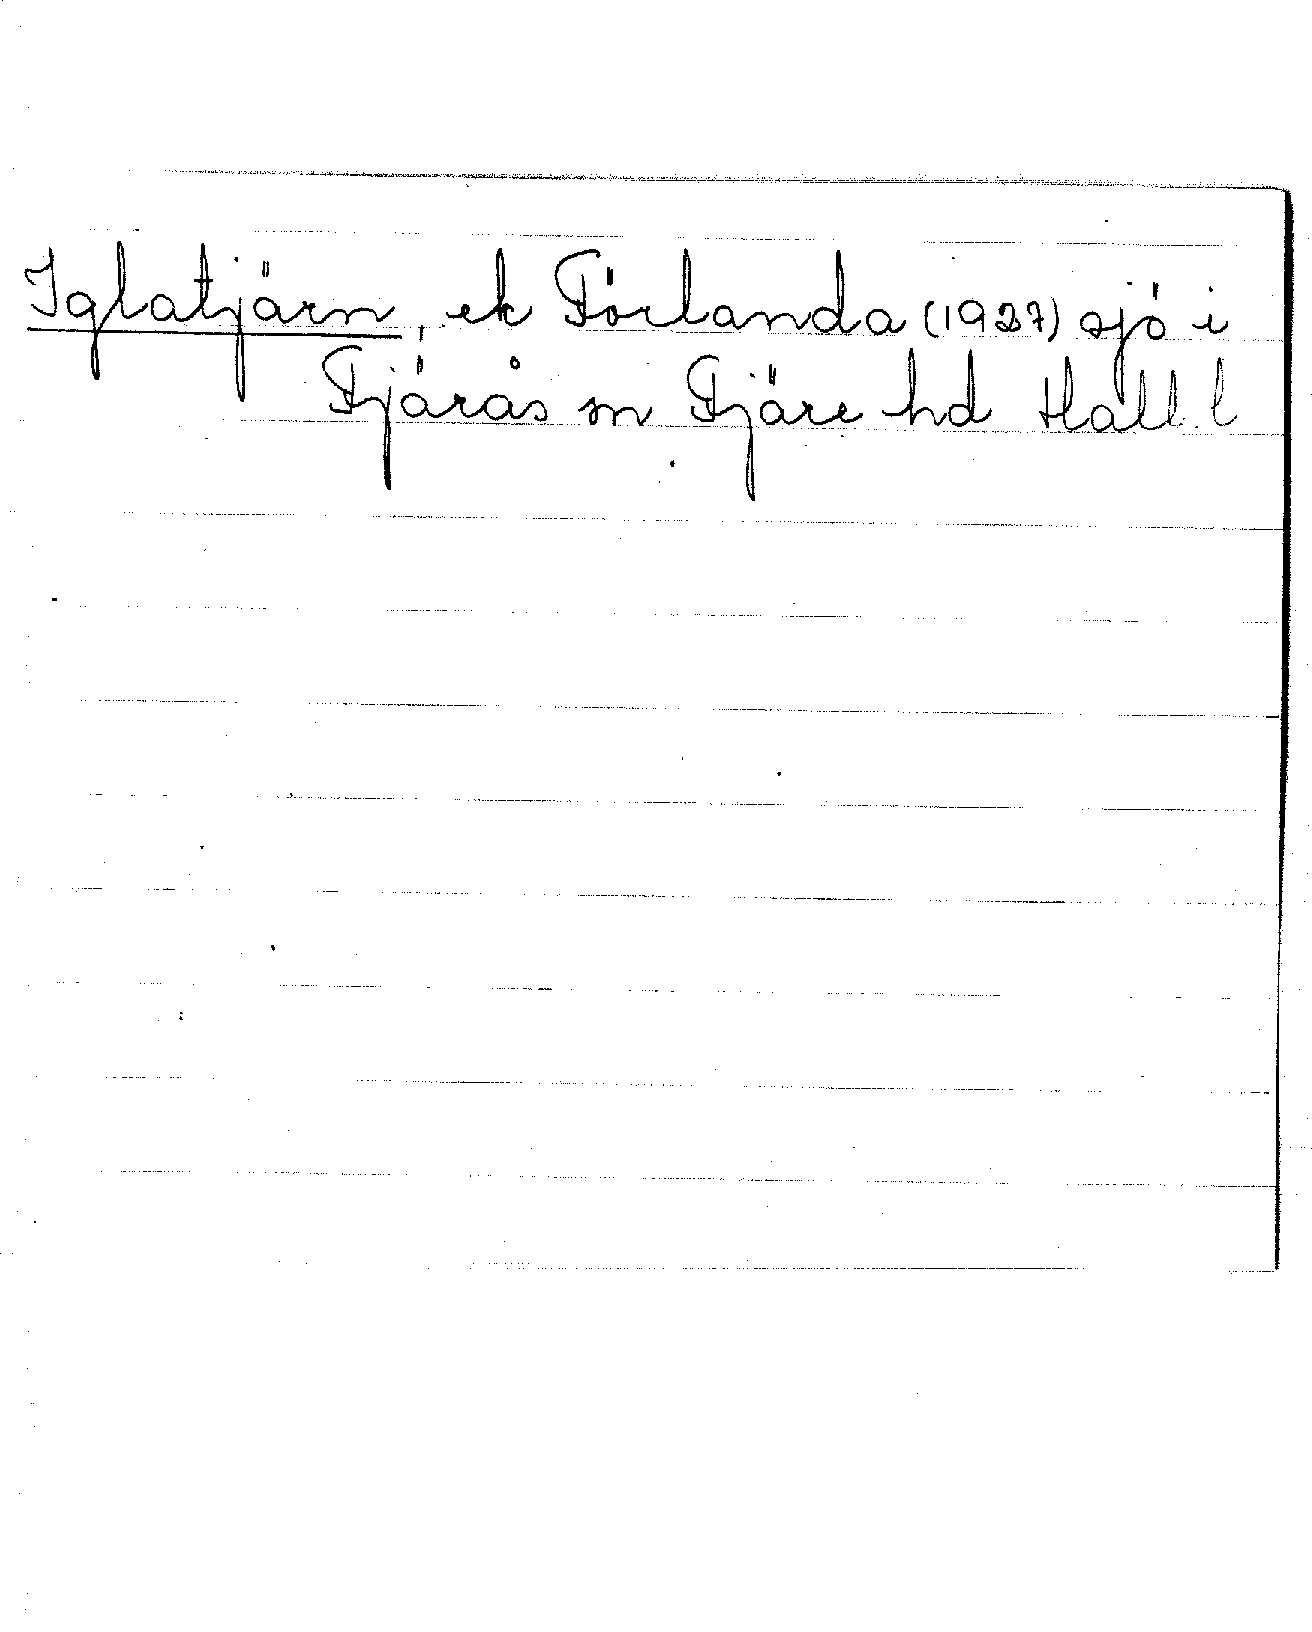 Iglatjärn, ek Förlanda (1927) sjö i
Fjärås sn Fjäre hd Hall. l